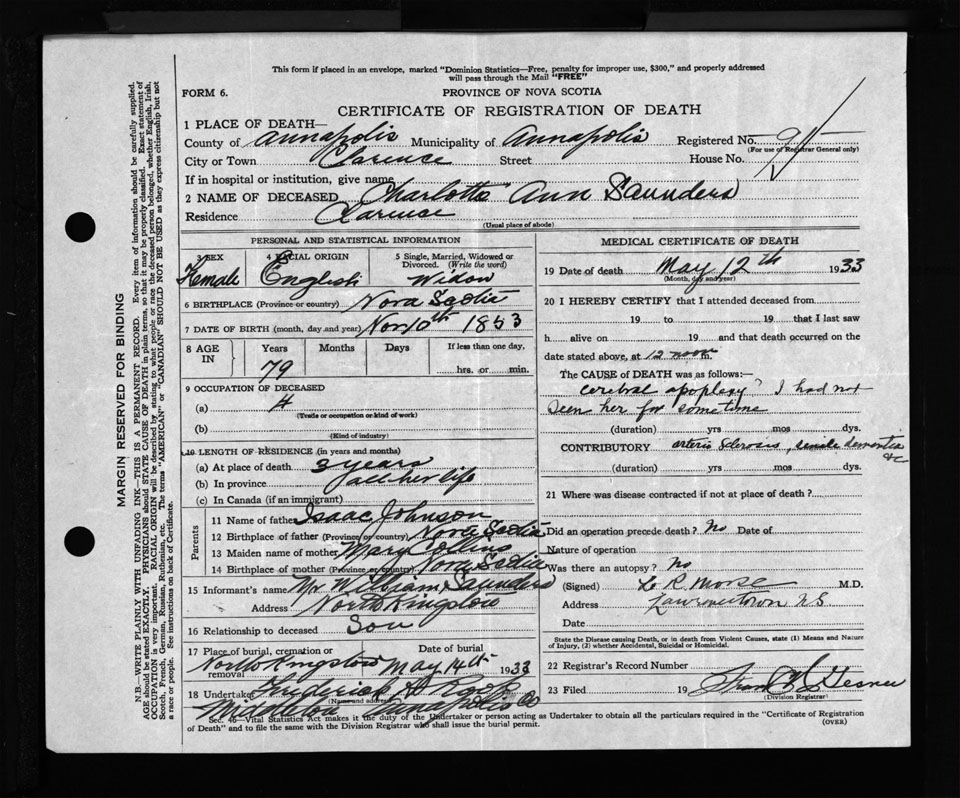 This form if placed in an envelope, marked "Dominion Statistics—Free, penalty for improper use, $300," and properly addressed
will pass through the Mail "FREE"
FORM 6.
PROVINCE OF NOVA SCOTIA
CERTIFICATE OF REGISTRATION OF DEATH
1 PLACE OF DEATH—
County of Annapolis Municipality of Annapolis Registered No.
(For use of Registrar General only)
City or Town Clarence Street House No.
If in hospital or institution, give name
2 NAME OF DECEASED Charlotte Ann Saunders
Residence Clarence
(Usual place of abode)
PERSONAL AND STATISTICAL INFORMATION
3 SEX 4 RACIAL ORIGIN 5 Single, Married, Widowed or
Divorced. (Write the word)
Female English Widow
6 BIRTHPLACE (Province or country) Nova Scotia
7 DATE OF BIRTH (month, day and year) Nov 10th 1853
8 AGE IN Years Months Days If less than one day,
79 hrs. or min.
9 OCCUPATION OF DECEASED
(a) H
(Trade or occupation or kind of work)
(b)
(Kind of industry)
10 LENGTH OF RESIDENCE (in years and months)
(a) At place of death 3 years
(b) In province all her life
(c) In Canada (if an immigrant)
Parents
11 Name of father Isaac Johnson
12 Birthplace of father (Province or country) Nova Scotia
13 Maiden name of mother Mary
14 Birthplace of mother (Province or country) Nova Scotia
15 Informant's name Mr William Saunders
Address North Kingston
16 Relationship to deceased Son
17 Place of burial, cremation or removal Date of burial
North Kingston May 14th 1933
18 Undertaker Frederick
(Name and address)
Middleton Annapolis Co
Sec. 46—Vital Statistics Act makes it the duty of the Undertaker or person acting as Undertaker to obtain all the particulars required in the "Certificate of Registration
of Death" and to file the same with the Division Registrar who shall issue the burial permit.
(OVER)
MEDICAL CERTIFICATE OF DEATH
19 Date of death May 12th 1933
(Month, day and year)
20 I HEREBY CERTIFY that I attended deceased from
19 to 19 that I last saw
h alive on 19 and that death occurred on the
date stated above, at 12 noon m.
The CAUSE of DEATH was as follows:—
cerebral apoplexy? I had not
seen her for sometime
(duration) yrs mos dys.
CONTRIBUTORY arterio sclerosis, senile dementia
&c
(duration) yrs mos dys.
21 Where was disease contracted if not at place of death?
Did an operation precede death? No Date of
Nature of operation
Was there an autopsy? No
(Signed) L. R. Morse M.D.
Address Lawrencetown N.S
Date
State the Disease causing Death, or in death from Violent Causes, state (1) Means and Nature
of Injury, (2) whether Accidental, Suicidal or Homicidal.
22 Registrar's Record Number
23 Filed 19
(Division Registrar)
MARGIN RESERVED FOR BINDING
N.B.—WRITE PLAINLY WITH UNFADING INK—THIS IS A PERMANENT RECORD. Every item of information should be carefully supplied.
AGE should be stated EXACTLY. PHYSICIANS should STATE CAUSE OF DEATH in plain terms, so that it may be properly classified. Exact statement of
OCCUPATION is very important. RACIAL ORIGIN will be described by stating to what people or race the deceased person belonged, whether English, Irish,
Scotch, French, German, Russian, Ruthenian, etc. The terms "AMERICAN" or "CANADIAN" SHOULD NOT BE USED as they express citizenship but not
a race or people. See instructions on back of Certificate.